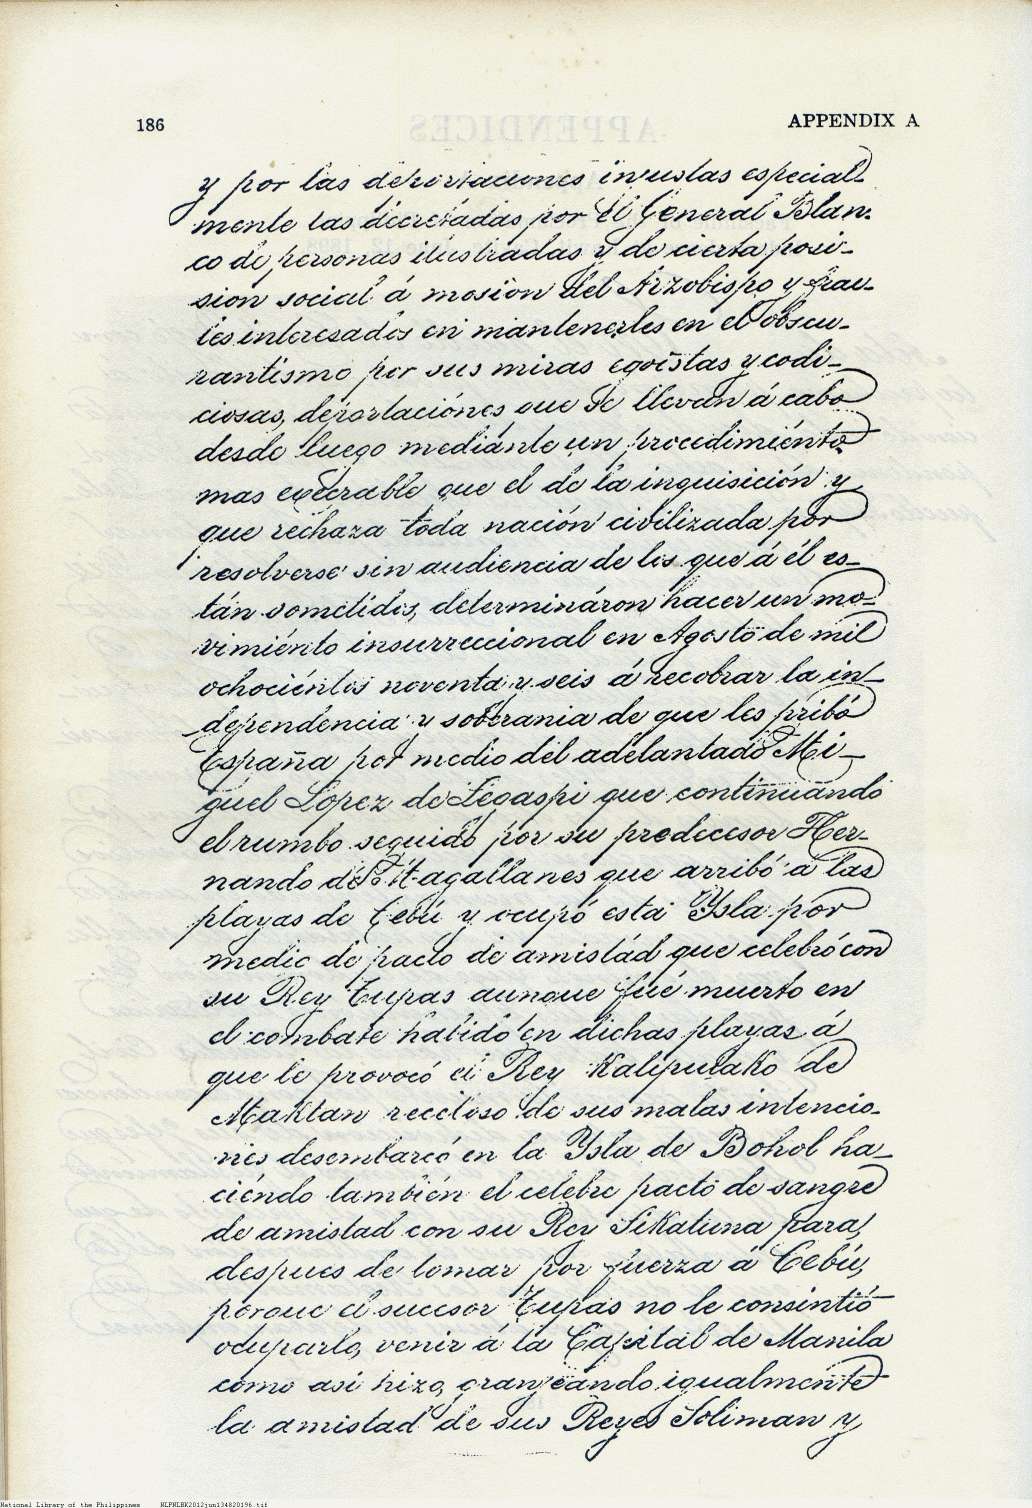 186
APPENDIX A
y por las deportaciones injustas especial-
mente las decretadas por El General Blan-
co de personas ilustradas y de cierta posi-
sion social á mosion del Arzobispo y frai-
les interesados en mantenerles en el obscu-
rantismo por sus miras egoistas y codi-
ciosas, deportaciónes que se llevan á cabo
desde luego mediante un procedimiénto
mas execrable que el de la inquisición y
que rechaza toda nación civilizada por
resolverse sin audiencia de los que á él es-
tán sometidos, determináron hacer un mo-
vimiénto insurreccional en Agosto de mil
ochociéntos noventa y seis á recobrar la in-
dependencia y soberania de que les pribó
España por medio del adelantado Mi-
guel Lopez de Legaspi que continuando
el rumbo seguido por su predecesor Her-
nando de Magallanes que arribó á las
playas de Cebú y ocupó esta Ysla por
medio de pacto de amistád que celebró con
su Rey Tupas aunque fué muerto en
el combate habido en dichas playas á
que le provocó el Rey Kalipulako de
Maktan receloso de sus malas intencio-
nes desembarcó en la Ysla de Bohol ha-
ciéndo también el celebre pacto de sangre
de amistad con su Rey Sikatuna para,
despues de tomar por fuerza á Cebú,
porque el sucesor Tupas no le consintió
ocuparlo, venir á la Capital de Manila
como asi hizo, granjeando igualmente
la amistad de sus Reyes Soliman y
National Library of the Philippines NLPNLBK2012jun134820196.tif